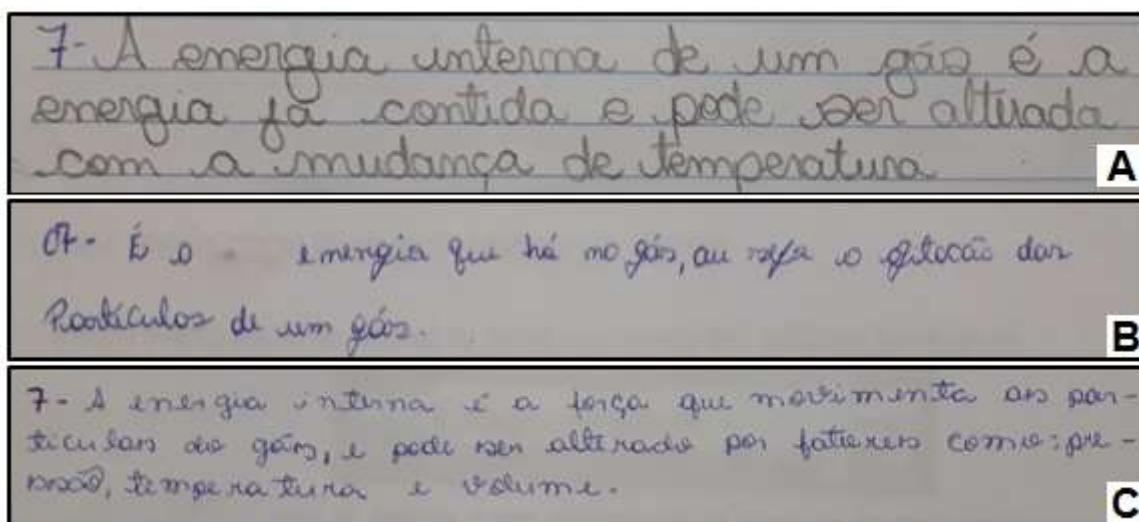 7- A energia interna de um gás é a
energia já contida e pode ser alterada
com a mudança de temperatura
A
07- É a energia que há no gás, ou seja a agitação das
Partículas de um gás.
B
7- A energia interna é a força que movimenta as par-
tículas do gás, e pode ser alterado por fatores como: pre-
ssão, temperatura e volume.
C